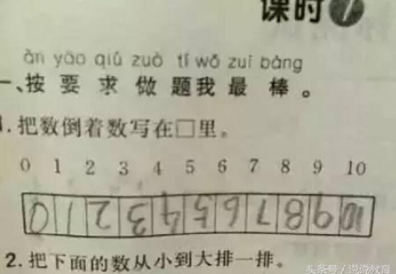 课时7
àn yāo qiú zuò tí wǒ zuì bàng
一、按要求做题我最棒。
1.把数倒着数写在□里。
0 1 2 3 4 5 6 7 8 9 10
0 1 2 3 4 5 6 7 8 9 10
2.把下面的数从小到大排一排。
头条号/